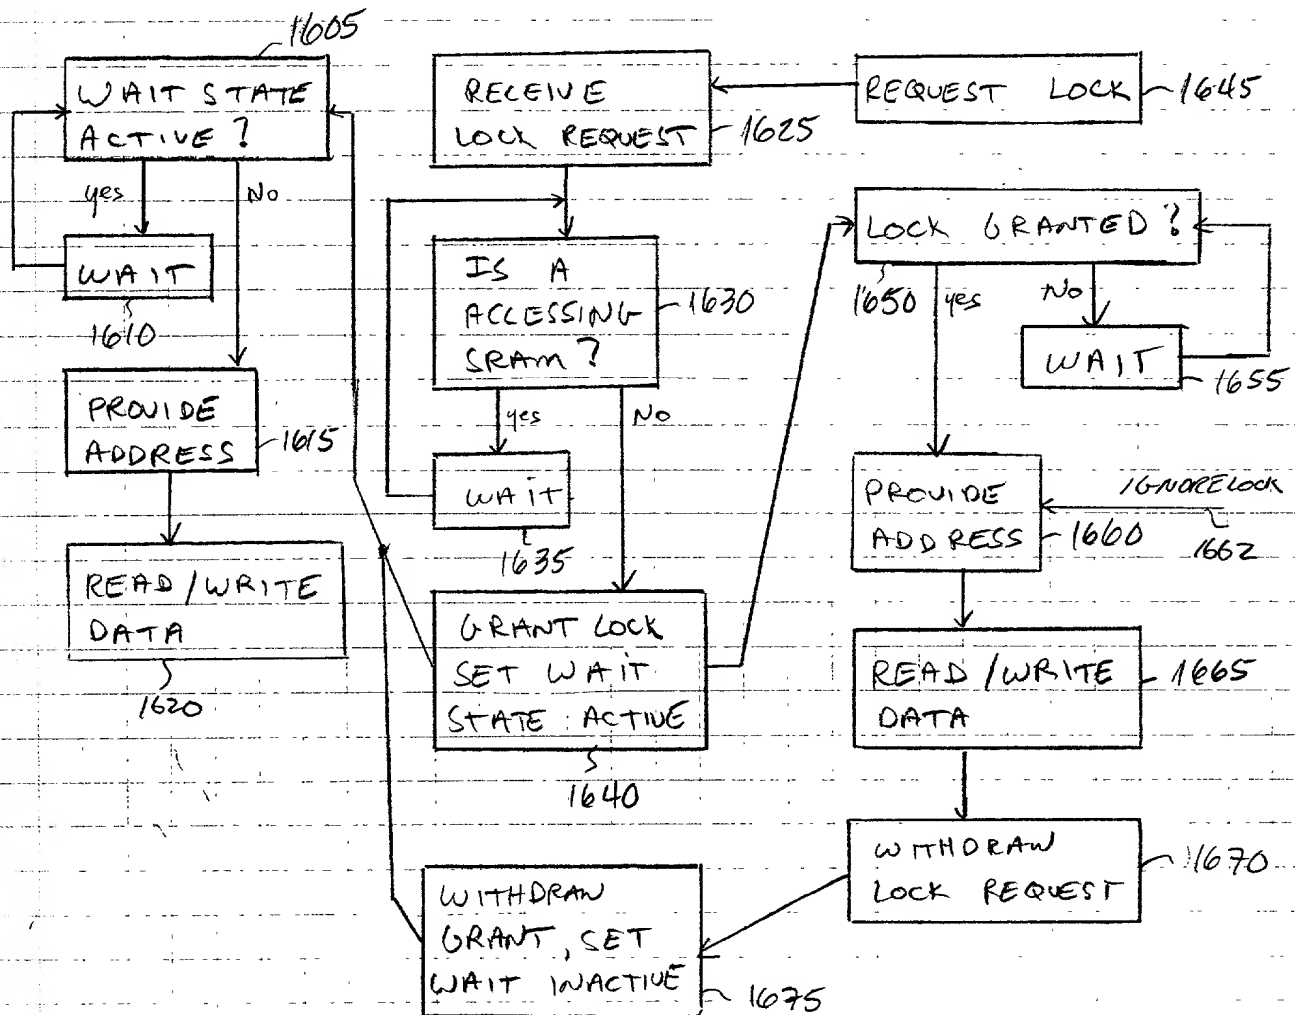 1605
WAIT STATE
ACTIVE?
yes
No
WAIT
1610
PROVIDE
ADDRESS
1615
READ/WRITE
DATA
1620
RECEIVE
LOCK REQUEST
1625
IS A
ACCESSING
SRAM?
1630
yes
No
WAIT
1635
GRANT LOCK
SET WAIT
STATE ACTIVE
1640
WITHDRAW
GRANT, SET
WAIT INACTIVE
1675
REQUEST LOCK
1645
LOCK GRANTED?
1650
yes
No
WAIT
1655
PROVIDE
ADDRESS
1660
IGNORELOCK
1662
READ/WRITE
DATA
1665
WITHDRAW
LOCK REQUEST
1670